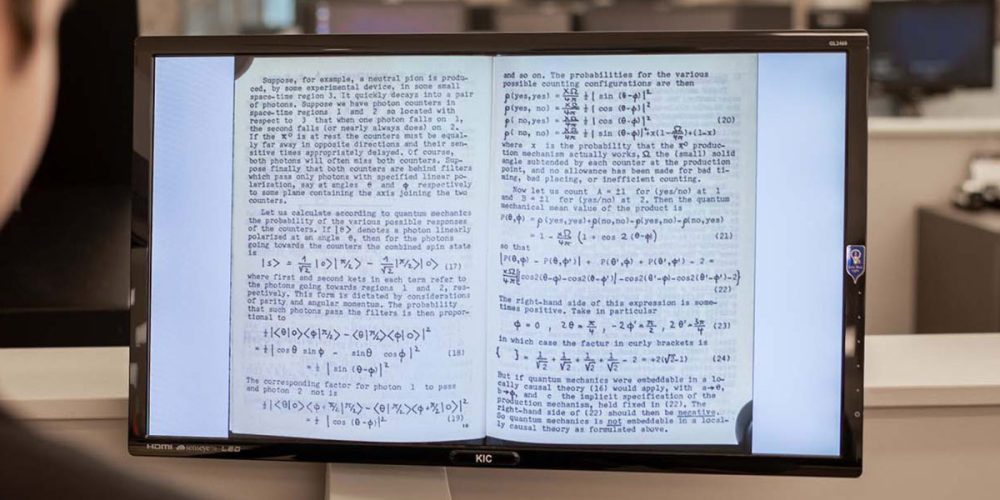 GL2460
Suppose, for example, a neutral pion is produ-
ced, by some experimental device, in some small
space-time region 3. It quickly decays into a pair
of photons. Suppose we have photon counters in
space-time regions 1 and 2 so located with
respect to 3 that when one photon falls on 1,
the second falls (or nearly always does) on 2.
If the π⁰ is at rest the counters must be equal-
ly far away in opposite directions and their sen-
sitive times appropriately delayed. Of course,
both photons will often miss both counters. Sup-
pose finally that both counters are behind filters
which pass only photons with specified linear po-
larization, say at angles θ and φ respectively
to some plane containing the axis joining the two
counters.
Let us calculate according to quantum mechanics
the probability of the various possible responses
of the counters. If |θ> denotes a photon linearly
polarized at an angle θ, then for the photons
going towards the counters the combined spin state
is
|s> = 1/√2 |0>|π/2> − 1/√2 |π/2>|0> (17)
where first and second kets in each term refer to
the photons going towards regions 1 and 2, res-
pectively. This form is dictated by considerations
of parity and angular momentum. The probability
that such photons pass the filters is then propor-
tional to
½|<θ|0><φ|π/2> − <θ|π/2><φ|0>|²
= ½| cos θ sin φ − sin θ cos φ|² (18)
= ½ | sin (θ-φ)|²
The corresponding factor for photon 1 to pass
and photon 2 not is
½|<θ|0><φ+π/2|π/2> − <θ|π/2><φ+π/2|0>|²
= ½ | cos (θ-φ)|² (19)
18
and so on. The probabilities for the various
possible counting configurations are then
ρ(yes, yes) = XΩ/4π ½ | sin (θ-φ)|²
ρ(yes, no) = XΩ/4π ½ | cos (θ-φ)|²
ρ( no, yes) = XΩ/4π ½ | cos (θ-φ)|² (20)
ρ( no, no) = XΩ/4π ½ | sin (θ-φ)|²+x(1-Ω/4π)+(1-x)
where x is the probability that the π⁰ produc-
tion mechanism actually works, Ω the (small) solid
angle subtended by each counter at the production
point, and no allowance has been made for bad ti-
ming, bad placing, or inefficient counting.
Now let us count A = ±1 for (yes/no) at 1
and B = ±1 for (yes/no) at 2. Then the quantum
mechanical mean value of the product is
P(θ,φ) = ρ(yes,yes)+ρ(no,no)-ρ(yes,no)-ρ(no,yes)
= 1 - XΩ/4π (1 + cos 2 (θ-φ)) (21)
so that
|P(θ,φ) - P(θ,φ')| + P(θ',φ) + P(θ',φ') - 2 =
XΩ/4π{|cos2(θ-φ)-cos2(θ-φ')|-cos2(θ'-φ)-cos2(θ'-φ')-2}
(22)
The right-hand side of this expression is some-
times positive. Take in particular
φ = 0 , 2θ = π/4 , -2φ' = π/2, 2θ' = 3π/4 (23)
in which case the factor in curly brackets is
{ } = 1/√2 + 1/√2 + 1/√2 + 1/√2 - 2 = +2(√2-1) (24)
But if quantum mechanics were embeddable in a lo-
cally causal theory (16) would apply, with a→θ,
b→φ, and c the implicit specification of the
production mechanism, held fixed in (22). The
right-hand side of (22) should then be negative.
So quantum mechanics is not embeddable in a local-
ly causal theory as formulated above.
HDMI senseye LED
KIC